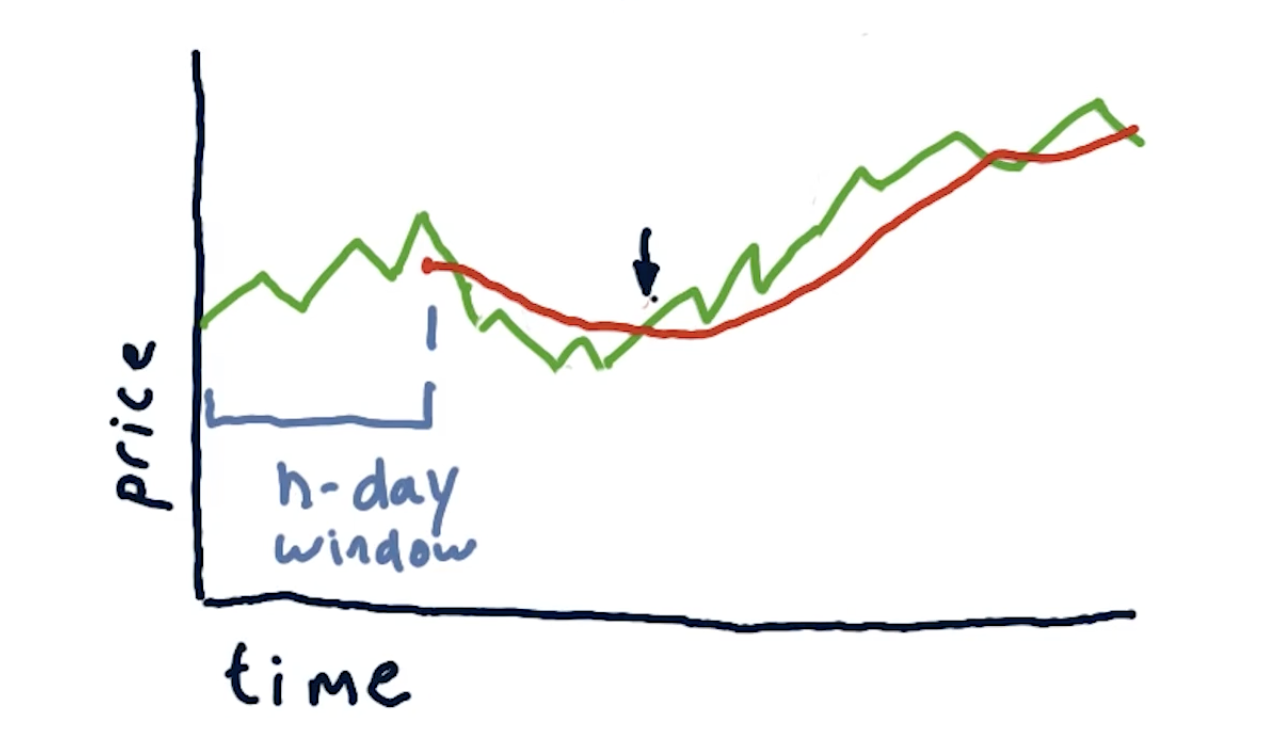 price
n-day
window
time